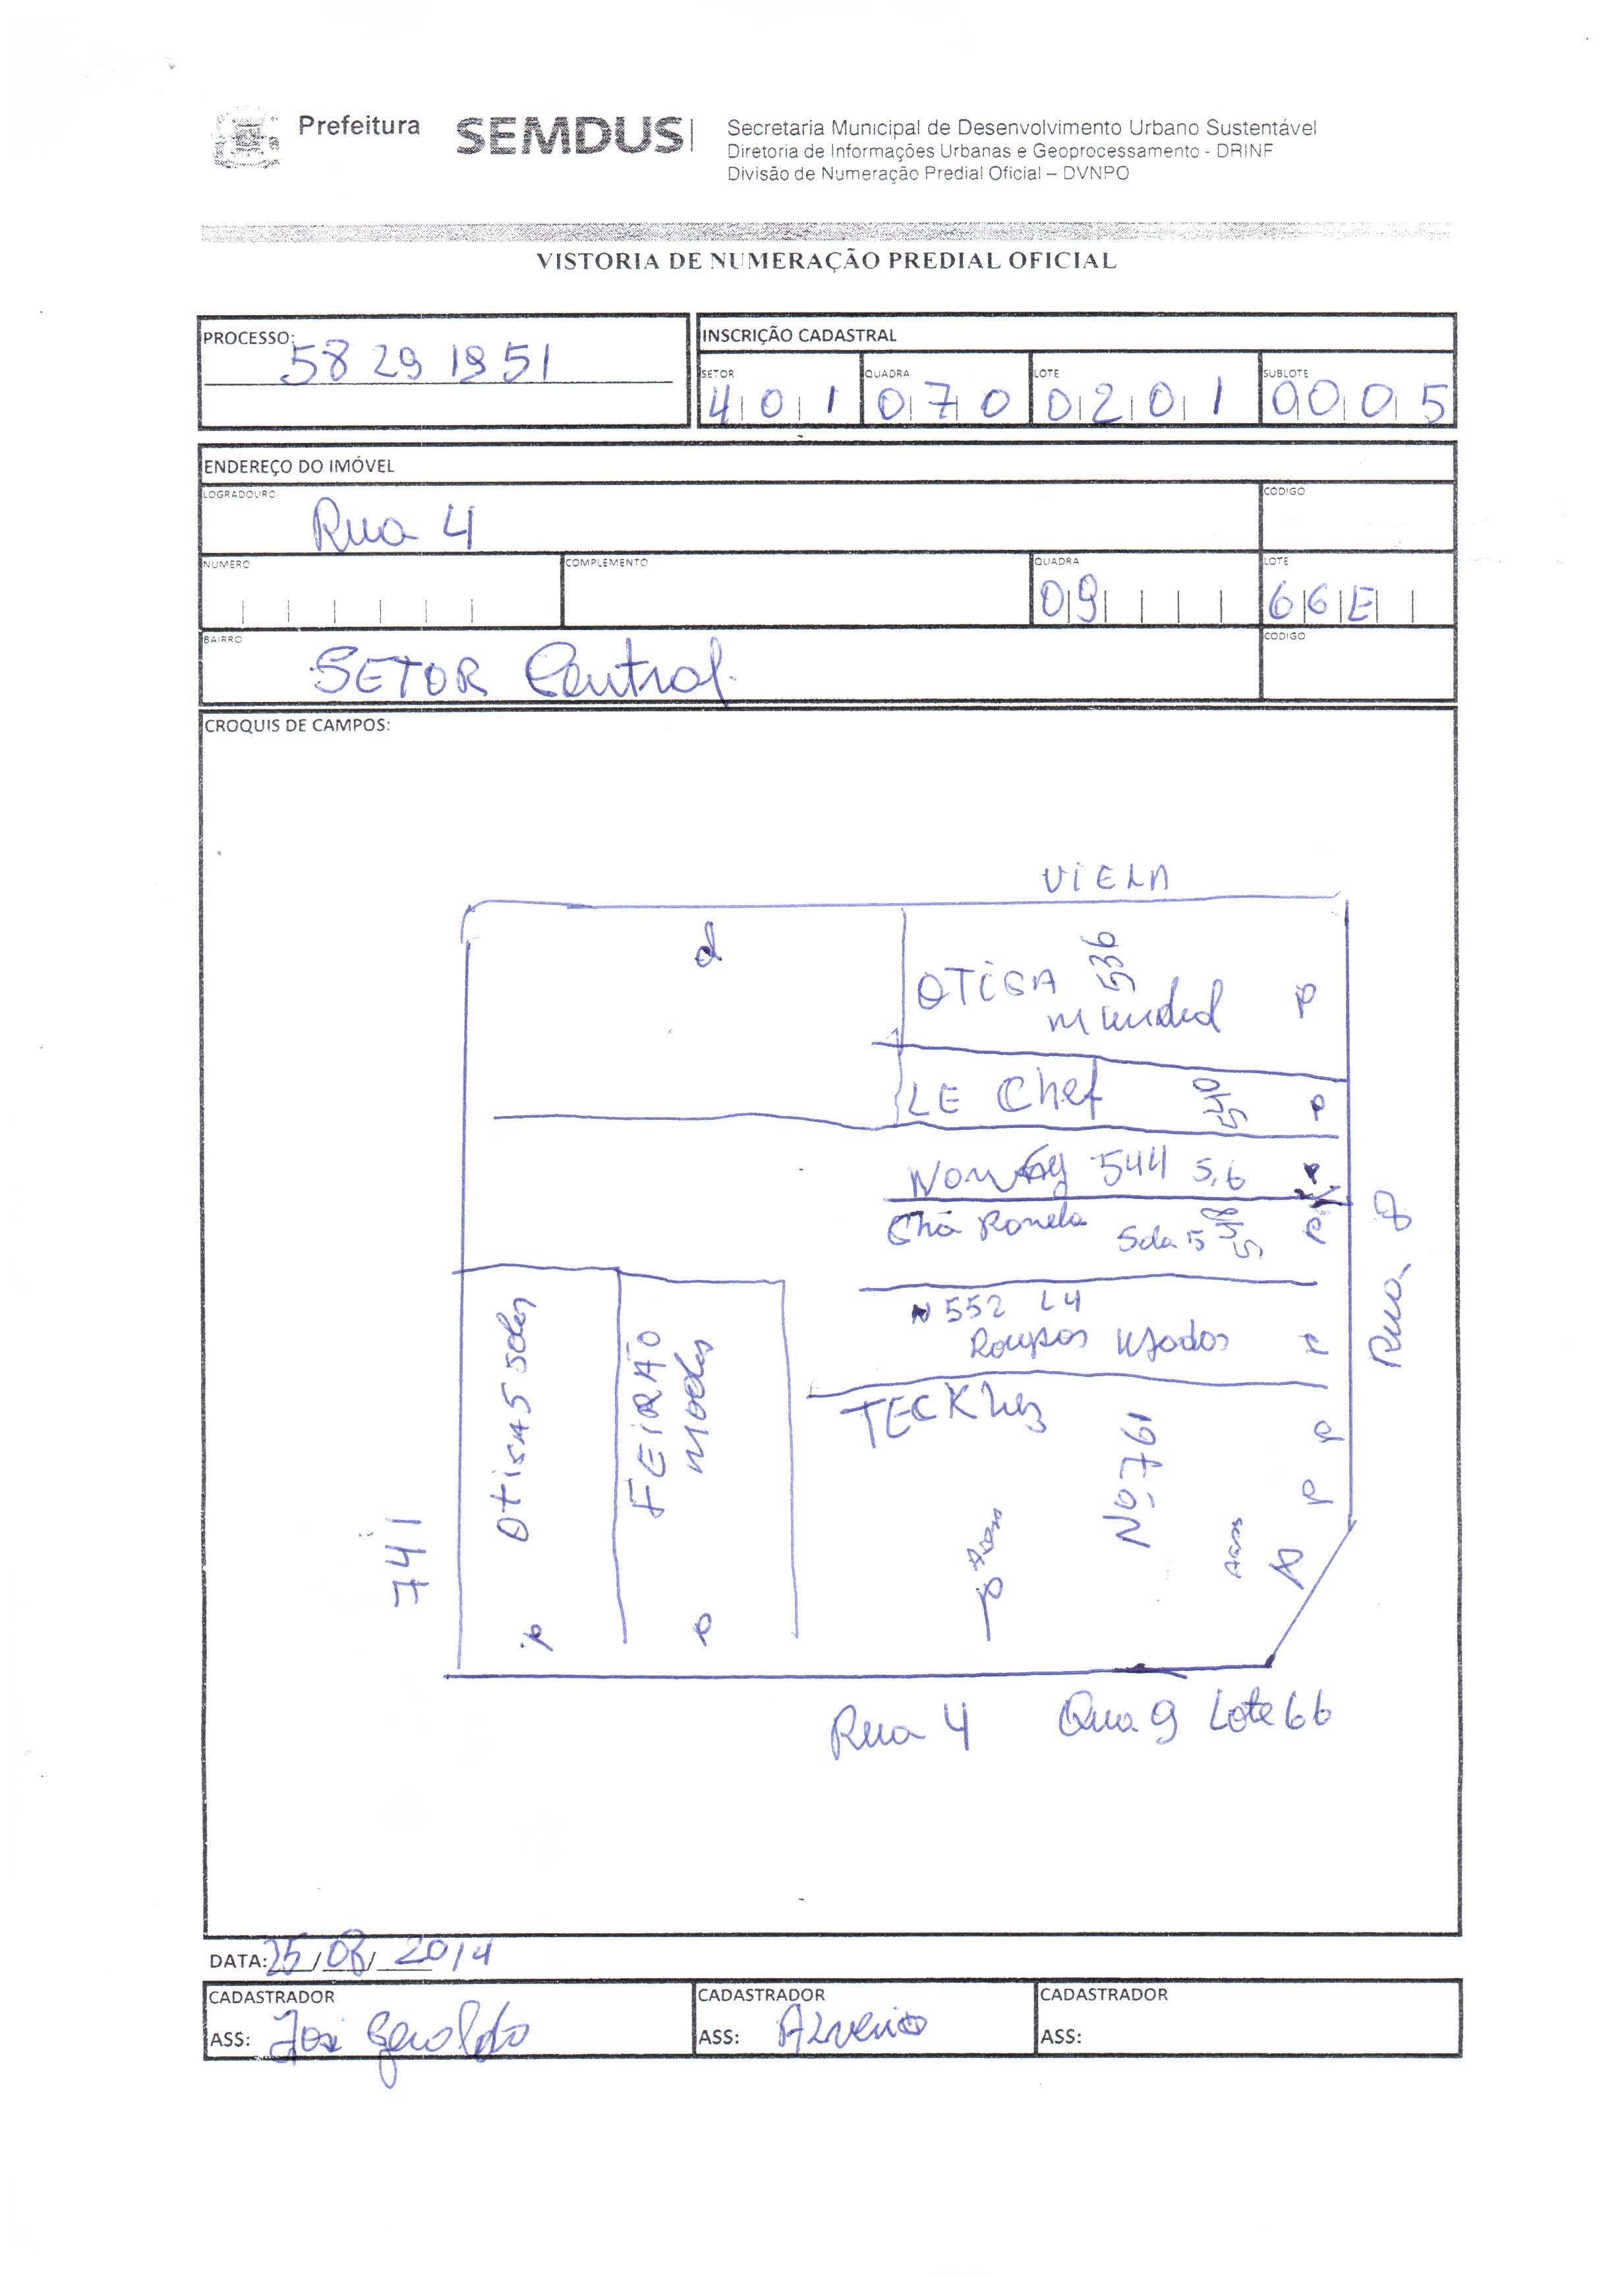 Prefeitura
SEMDUS
Secretaria Municipal de Desenvolvimento Urbano Sustentável
Diretoria de Informações Urbanas e Geoprocessamento - DRINF
Divisão de Numeração Predial Oficial – DVNPO
VISTORIA DE NUMERAÇÃO PREDIAL OFICIAL
PROCESSO: 58 29 19 51
INSCRIÇÃO CADASTRAL
SETOR QUADRA LOTE SUBLOTE
401 070 0201 0005
ENDEREÇO DO IMÓVEL
LOGRADOURO CODIGO
Rua 4
NUMERO COMPLEMENTO QUADRA LOTE
09 66E
BAIRRO CODIGO
SETOR Central
CROQUIS DE CAMPOS:
VIELA
OTICA 536
mundial P
LE Chef 540 P
544 5,6 P
Chá Panela Sala 5 548 P
N 552 L4
Roupas Usados P
Rua 8
TECK
Nº 761
FEIRÃO
modas
741
Rua 4 Qua 9 Lote 66
DATA: 25/08/2014
CADASTRADOR CADASTRADOR CADASTRADOR
ASS: José Geraldo ASS: ASS: